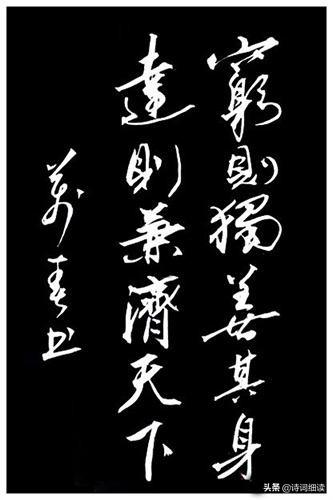 窮則獨善其身
達則兼濟天下
萬春书
头条 @诗词细读